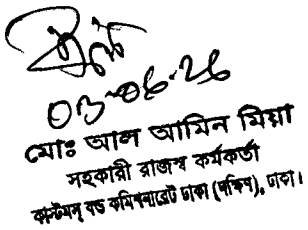 ০৩-০৬-২৬
মোঃ আল আমিন মিয়া
সহকারী রাজস্ব কর্মকর্তা
কাস্টমস্ বন্ড কমিশনারেট ঢাকা (দক্ষিণ), ঢাকা।